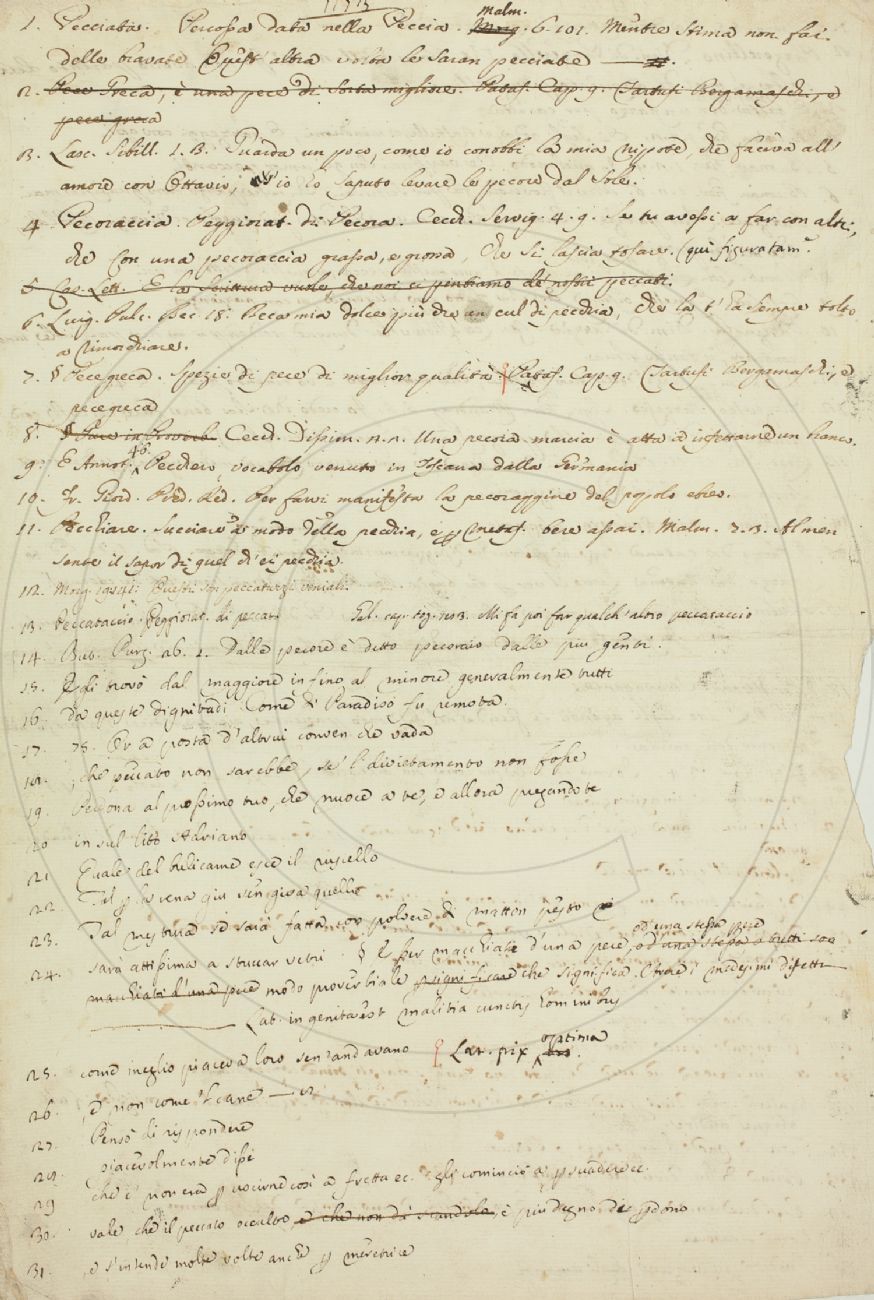 1. Pecciata. Percossa data nella Peccia. Morg. Malm. 6. 101. Mentre stima non fai
delle bravate Quest' altra volta le saran pecciate
2. Pece Greca, è una pece di sorta migliore. Pataf. Cap. 9. Tartufi Bergamaschi, e
pece greca
3. Lasc. Sibill. 1. 3. Guarda un poco, come io conobbi la mia nipote, che faceva all'
amore con Ottavio, io ho saputo levare le pecore dal Sole.
4. Pecoraccia. Peggiorat. di Pecora. Cecch. Servig. 4. 9. Se tu avessi a far con altri,
che con una pecoraccia grassa, e grossa, che si lascia tosare. (qui figuratam.e
5. Cas. Lett. E la Scrittura vuole, che noi ci pentiamo de' nostri peccati.
6. Luig. Pulc. Bec. 18. Beca mia dolce più che un cul di pecchia, che la t' ha sempre tolto
a rimorchiare.
7. § Pece greca. Spezie di pece di miglior qualità. Pataf. Cap. 9. Tartufi Bergamaschi, e
pece greca
8. § Pure in Proverb. Cecch. Dissim. 1. 1. Una pecora marcia è atta a infettarne un branco.
9. E Annot. 46. Pecchero, vocabolo venuto in Toscana dalla Germania
10. Fr. Giord. Pred. Red. Per farvi manifesta la pecoraggine del popolo ebreo.
11. Pecchiare. Succiare a modo della pecchia, e p metaf. bere assai. Malm. 7. 3. Al men
sente il sapor di quel ch' ei pecchia.
12. Morg. Questi son peccatuzzi veniali.
13. Peccataccio. Peggiorat. di peccato Fel. cap. Mi fa poi far qualch' altro peccataccio
14. But. Purg. 26. 1. Dalle pecore è detto pecoraio dalle più genti.
15. Egli trovò dal maggiore infino al minore generalmente tutti
16. Da queste dignitadi Come di Paradiso fu remota.
17. 75. Or a posta d'altrui conven che vada
18. , che peccato non sarebbe, se 'l divietamento non fosse
19. Perdona al prossimo tuo, che nuoce a te, e allora pregando te
20 in sul lito Adriano
21 Quale del bulicame esce il ruscello
22 Tal p la rena giù sen giva quello
23. Tal mestura se sarà fatta con polvere di matton pesto
sarà attissima a stuccar vetri
24. § Esser macchiati d'una pece, od'una stessa pece od'una stessa o tutti son
macchiati d'una pece modo proverbiale p significare che significa Avere i medesimi difetti
Lat. ingenita est malitia cunctis hominibus
25. come meglio piaceva loro sen' andavano Lat. pix optima
26. , e non come 'l cane
27. Pensò di rispondere
28. piacevolmente disse
29 che e' non era p uscirne così a fretta ec. gli cominciò a psuadere ec.
30. vale che il peccato occulto, e che non dà scandolo, è più degno di pdono
31. , e s'intende molte volte anche p meretrice